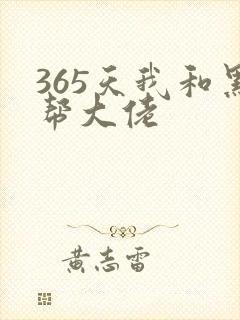 365天我和黑
帮大佬
黄志雷